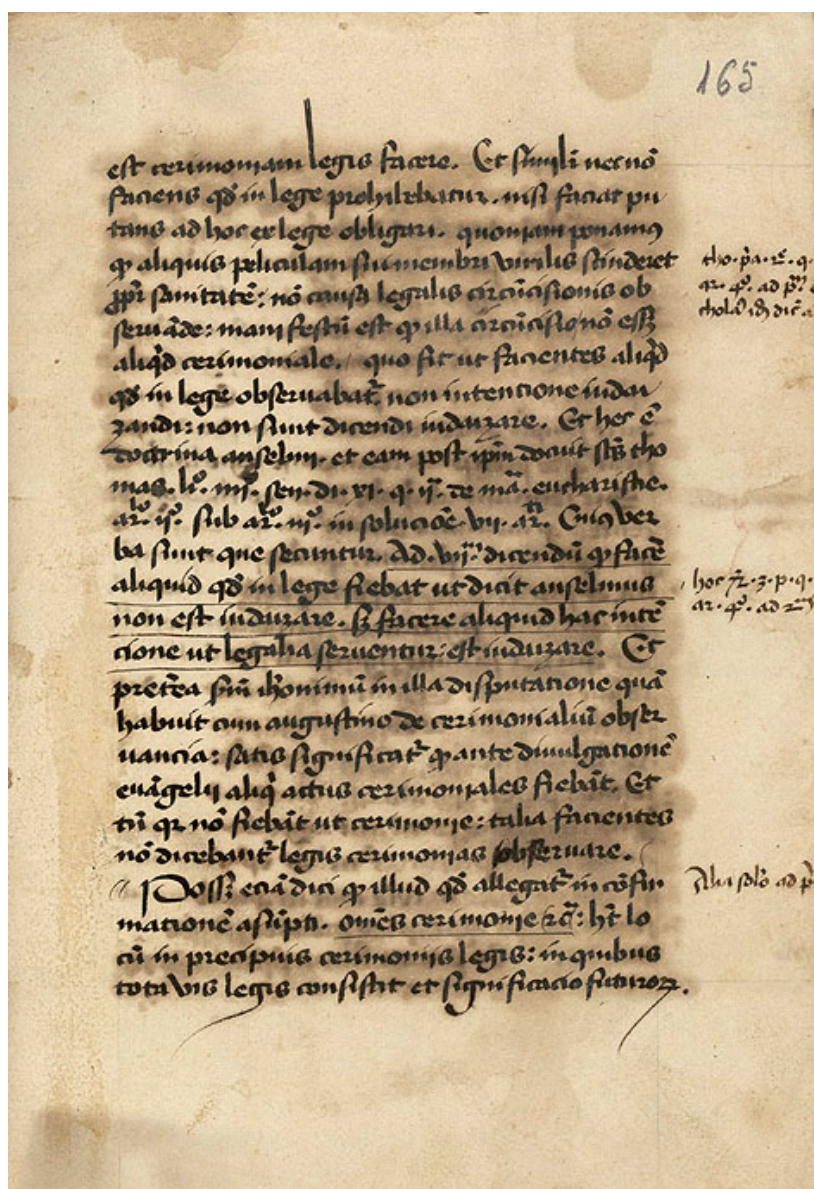 165
est cerimoniam legis facere. Et simili nec nō
faciens qd in lege prohibebatur. nisi faciat pu
tans ad hoc ex lege obligari. quoniam ponamꝯ
ꝙ aliquis peliculam sui membri virilis scinderet
ꝓpt̄ sanitatē: nō causa legalis circūcisionis ob
seruāde: manifestū est ꝙ illa circūcisio nō esꝫ
aliqd cerimoniale. quo fit ut facientes aliqd
qd in lege obseruabat̄. non intencione iudai
zandi: non sunt dicendi iudaizare. Et hec ē
doctrina anselmi. et eam post ip̄m docuit sc̄s tho
mas. li. iiij. sen. di. xi. q. ij. de mā. eucharistie.
ar. ij. sub ar. iij. in soluciōe. vij. ar. Cuiꝯ ver
ba sunt que secuntur. Ad. vij. dicendū ꝙ facē
aliquid qd in lege fiebat ut dicit anselmus
non est iudaizare. sꝫ facere aliquid hac intē
cione ut legalia seruentur: est iudaizare. Et
pretēa sm̄ ihronimū in illa disputatione quā
habuit cum augustino de cerimonialiū obser
uancia: satis significat̄ ꝙ ante diuulgationē
euāgelij aliq̄ actus cerimoniales fiebāt. Et
tū qꝛ nō fiebāt ut cerimonie: talia facientes
nō dicebant̄ legis cerimonias obseruare.
Possꝫ eciā dici ꝙ illud qd allegat̄ in cōfir
mationē asūpti. om̄es cerimonie ⁊c̄: hꝫt lo
cū in precipuis cerimonijs legis: in quibus
tota vis legis consistit et significacio futuroꝝ.
tho. p̄a. q.
ar. ad p̄
id dic̄
hoc 3. p. q.
ar. ad
Alia solo ad p̄